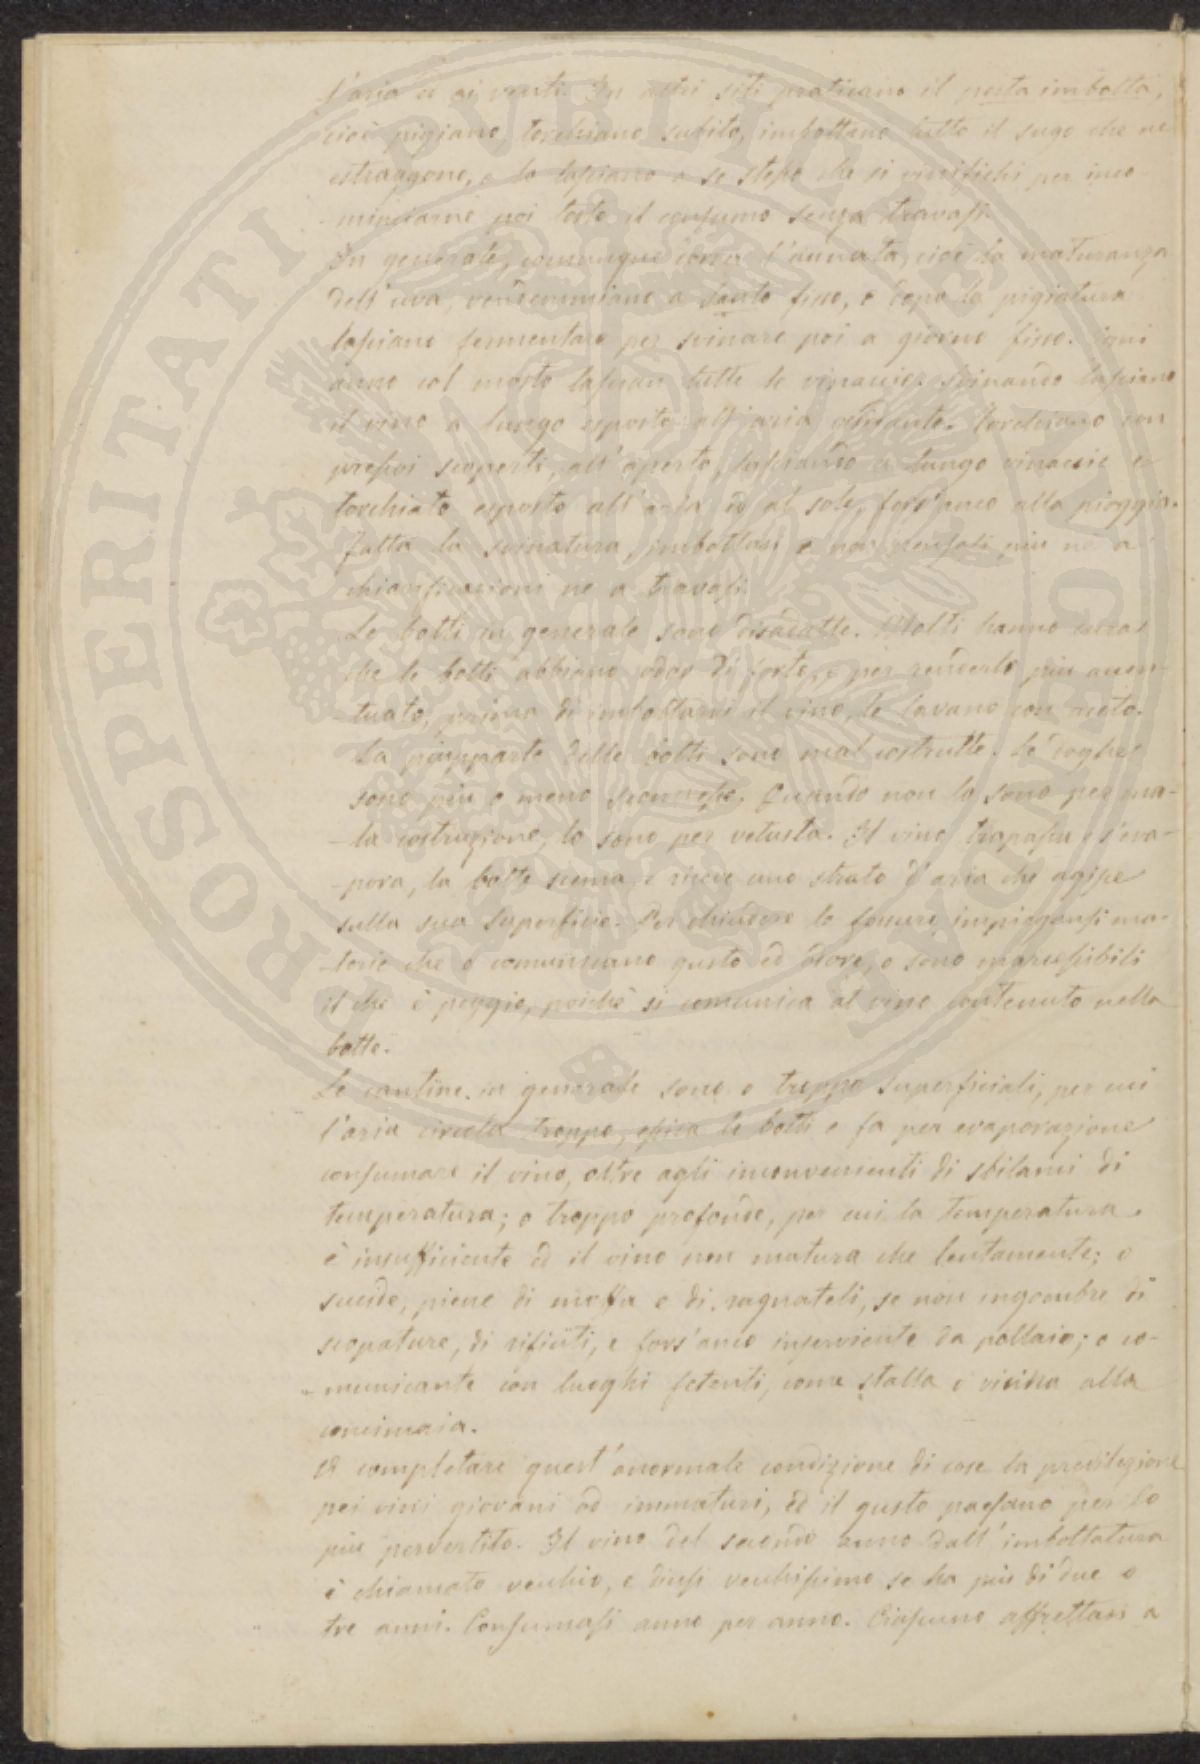 l'aria ed ai venti. In altri siti praticano il pesta imbotta,
cioè pigiano, torchiano subito, imbottano tutto il sugo che ne
estraggono, e lo lasciano a se stesso che si vinifichi per inco-
-minciarne poi tosto il consumo senza travasi.
In generale, comunque corra l'annata, cioè la maturanza
dell'uva, vendemmiano a santo fisso, e dopo la pigiatura
lasciano fermentare per svinare poi a giorno fisso. Ogni
anno col mosto lascian tutte le vinaccie. Svinando lasciano
il vino a lungo esposto all'aria ossidante. Torchiano con
pressoi scoperti, all'aperto, lasciando a lungo vinaccie e
torchiato esposto all'aria ed al sole, fors'anco alla pioggia.
Fatta la svinatura, imbottasi e non pensasi più ne a
chiarificazioni ne a travasi.
Le botti in generale sono disadatte. Molti hanno cura
che le botti abbiano odor di forte, e per renderlo più accen-
-tuato, prima di imbottarvi il vino, le lavano con aceto.
La piupparte delle botti sono mal costrutte. Le doghe
sono più o meno sconnesse. Quando non lo sono per ma-
-la costruzione, lo sono per vetustà. Il vino trapassa e s'eva-
-pora, la botte scema, e riceve uno strato d'aria che agisce
sulla sua superficie. Per chiudere le fessure impiegansi ma-
-terie che o comunicano gusto ed odore, o sono marcescibili
il che è peggio, poichè si comunica al vino contenuto nella
botte.
Le cantine in generale sono o troppo superficiali, per cui
l'aria circola troppo, essica le botti e fa per evaporazione
consumare il vino, oltre agli inconvenienti di sbilanci di
temperatura; o troppo profonde, per cui la temperatura
è insufficiente ed il vino non matura che lentamente; o
sucide, piene di muffa e di ragnateli, se non ingombre di
scopature, di rifiuti, e fors'anco inserviente da pollaio; o co-
-municante con luoghi fetenti, come stalla o vicina alla
concimaia.
A completare quest'anormale condizione di cose la predilezione
pei vini giovani od immaturi, ed il gusto paesano per lo
più pervertito. Il vino del secondo anno dall'imbottatura
è chiamato vecchio, e diessi vecchissimo se ha più di due o
tre anni. Consumasi anno per anno. Ciascuno affrettasi a
PROSPERITATI PVBLICAE AVGENDAE